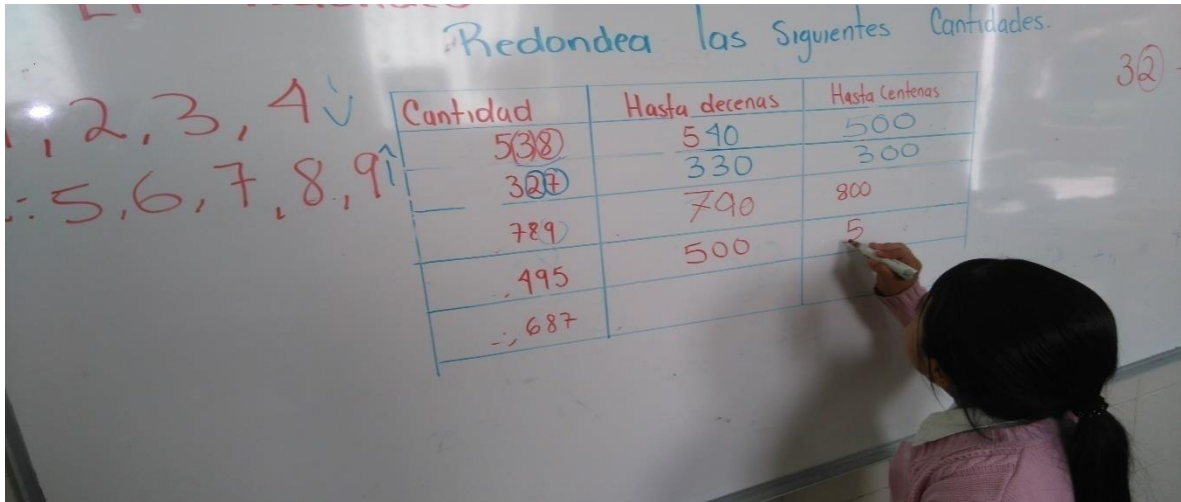 Redondea las Siguientes Cantidades.
32
1, 2, 3, 4
5, 6, 7, 8, 9
Cantidad Hasta decenas Hasta Centenas
538 540 500
327 330 300
789 790 800
495 500 5
687